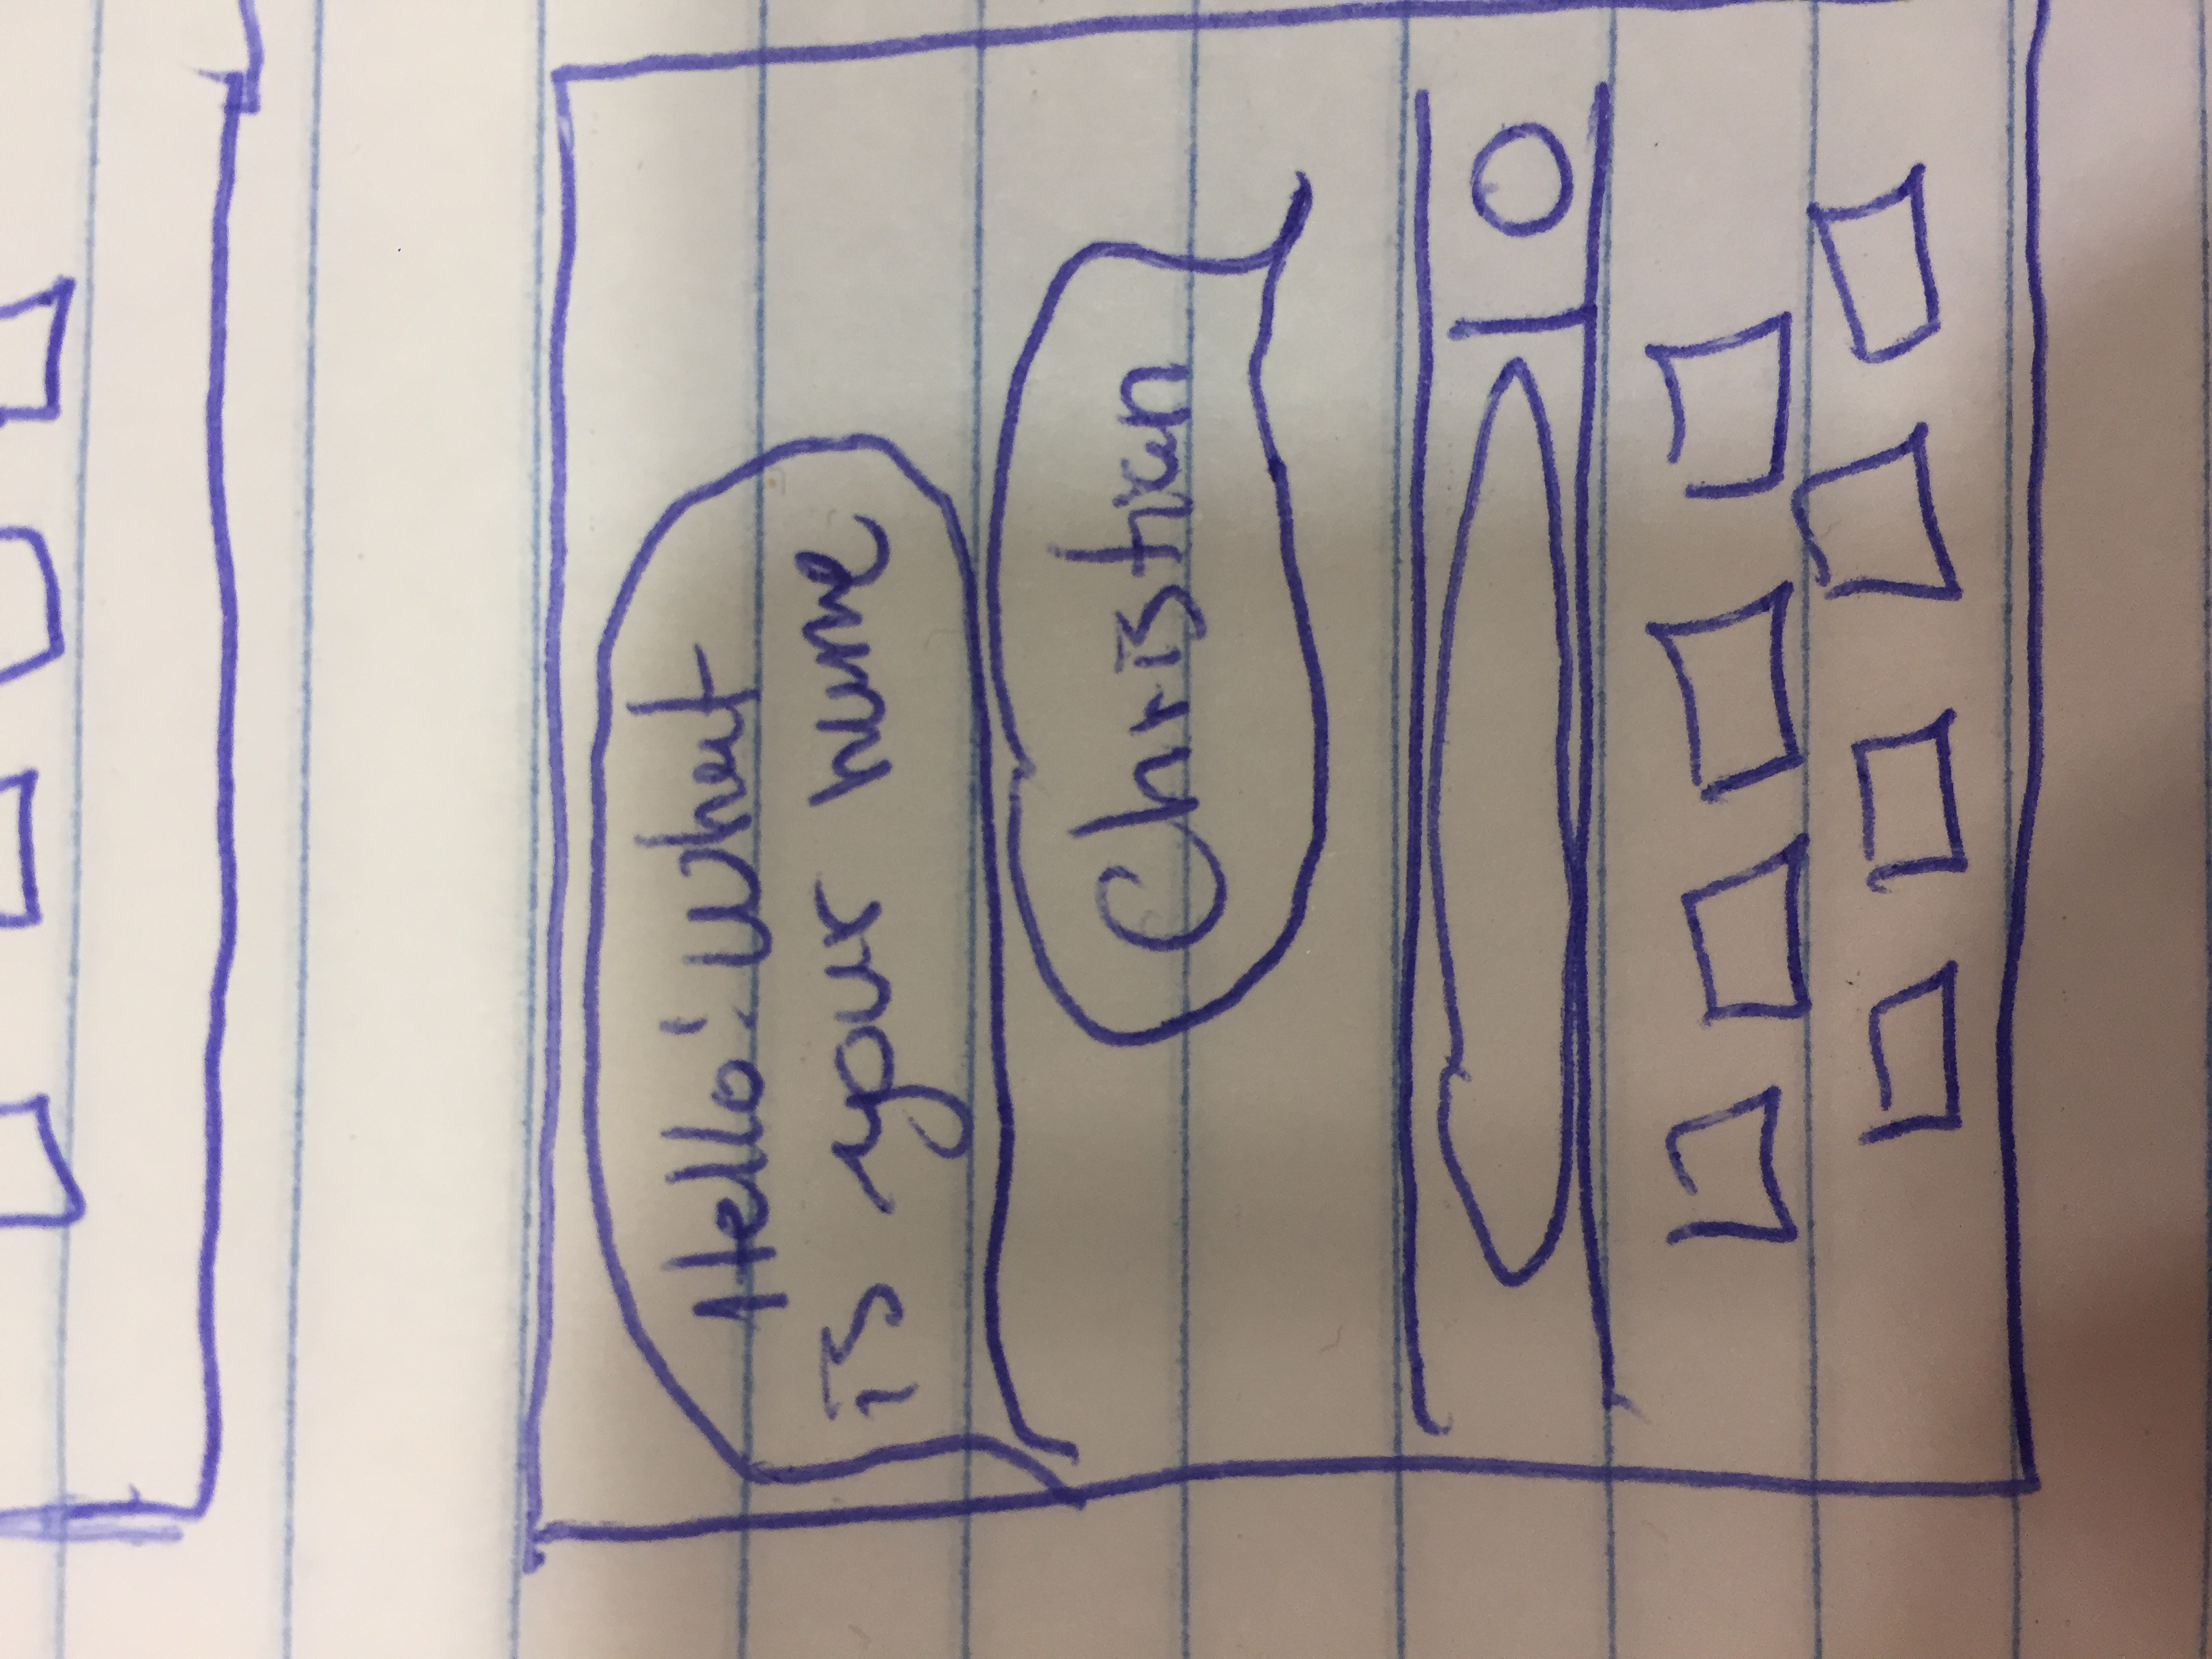 Hello! What
is your name
Christian